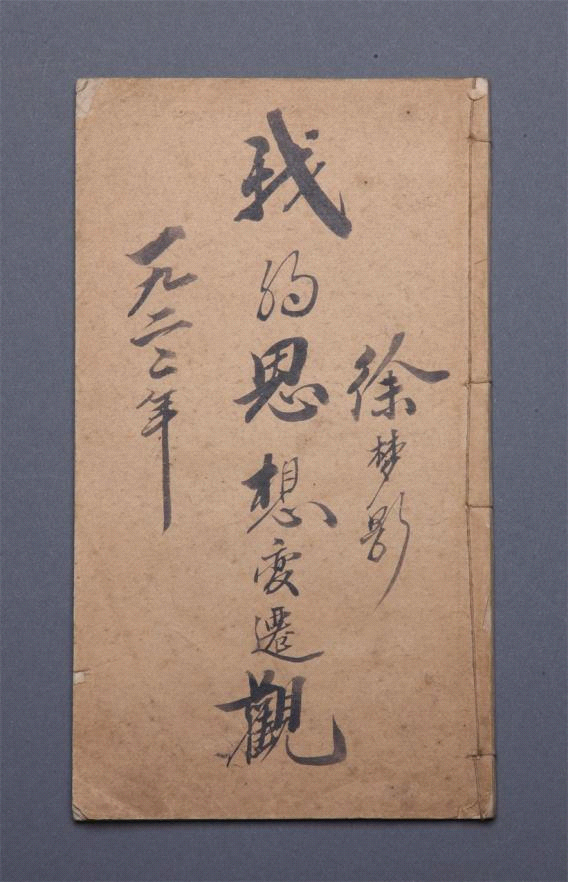 徐梦影
我的思想变遷觀
一九二二年